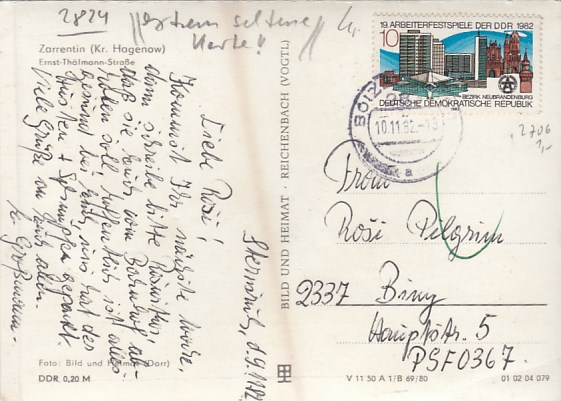 2824 "extrem seltene
Karte!"
Zarrentin (Kr. Hagenow)
Ernst-Thälmann-Straße
Liebe Rosi!
Kommst Ihr nächste Woche,
dann schreibe bitte
daß sie Euch vom Bahnhof ab-
holen soll, ist alles
gesund bei Euch, uns hat der
Husten + Schnupfen gepackt.
Viele Grüße an Euch allen.
Großmutter
d. 9.11.82
Foto: Bild und Heimat (Darr)
DDR 0,20 M
BILD UND HEIMAT · REICHENBACH (VOGTL)
19. ARBEITERFESTSPIELE DER DDR 1982
10
BEZIRK NEUBRANDENBURG
DEUTSCHE DEMOKRATISCHE REPUBLIK
10.11.82
a
2706
1,-
Frau
Rosi Pilgrim
2337 Binz
Hauptstr. 5
PSF 0367.
V 11 50 A 1/B 69/80
01 02 04 079